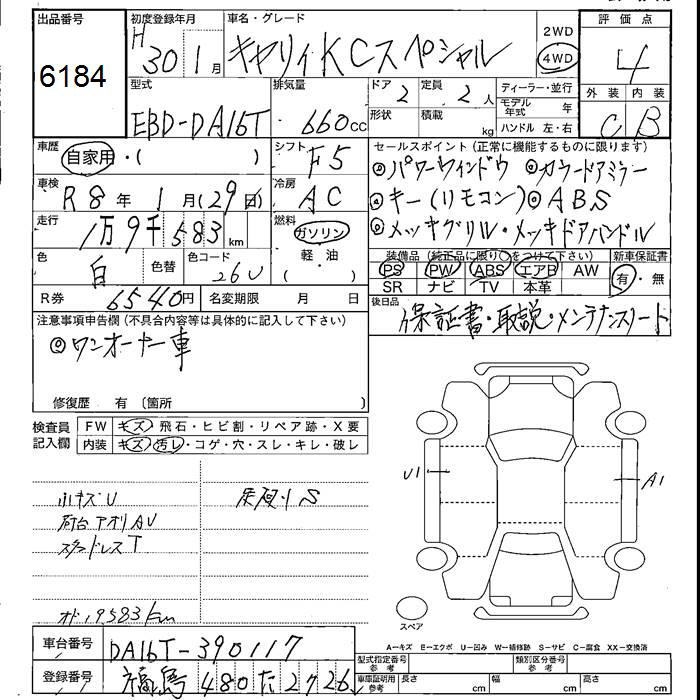 出品番号
6184
初度登録年月
H 30 1月
車名・グレード
キャリィ KCスペシャル
2WD
4WD
評価点
4
外装 内装
C B
型式
EBD-DA16T
排気量
660cc
ドア 2
定員 2人
形状
積載 kg
ディーラー・並行
モデル年式 年
ハンドル 左・右
車歴
自家用・( )
シフト
F5
車検
R8年 1月(29日)
冷房
AC
走行
1万9千583km
燃料
ガソリン
軽油
( )
色
白
色替
色コード
26U
R券 6540円
名変期限 月 日
セールスポイント(正常に機能するものに限ります)
◎パワーウィンドウ ◎カラードアミラー
◎キー(リモコン)◎ABS
◎メッキグリル・メッキドアハンドル
装備品(純正品に限り○をつけて下さい)
新車保証書
PS PW ABS エアB AW
SR ナビ TV 本革
有・無
後日品
保証書・取説・メンテナンスノート
注意事項申告欄(不具合内容等は具体的に記入して下さい)
◎ワンオーナー車
修復歴 有〔箇所 〕
検査員記入欄
FW キズ・飛石・ヒビ割・リペア跡・X要
内装 キズ・汚レ・コゲ・穴・スレ・キレ・破レ
小キズU
荷台アオリAU
スタッドレスT
オド19583km
U1
A1
スペア
A―キズ E―エクボ U―凹み W―補修跡 S―サビ C―腐食 XX―交換済
車台番号
DA16T-390117
登録番号
福島 480 た 2726
型式指定番号 参考
類別区分番号 参考
車庫証明用 参考
長さ cm
幅 cm
高さ cm